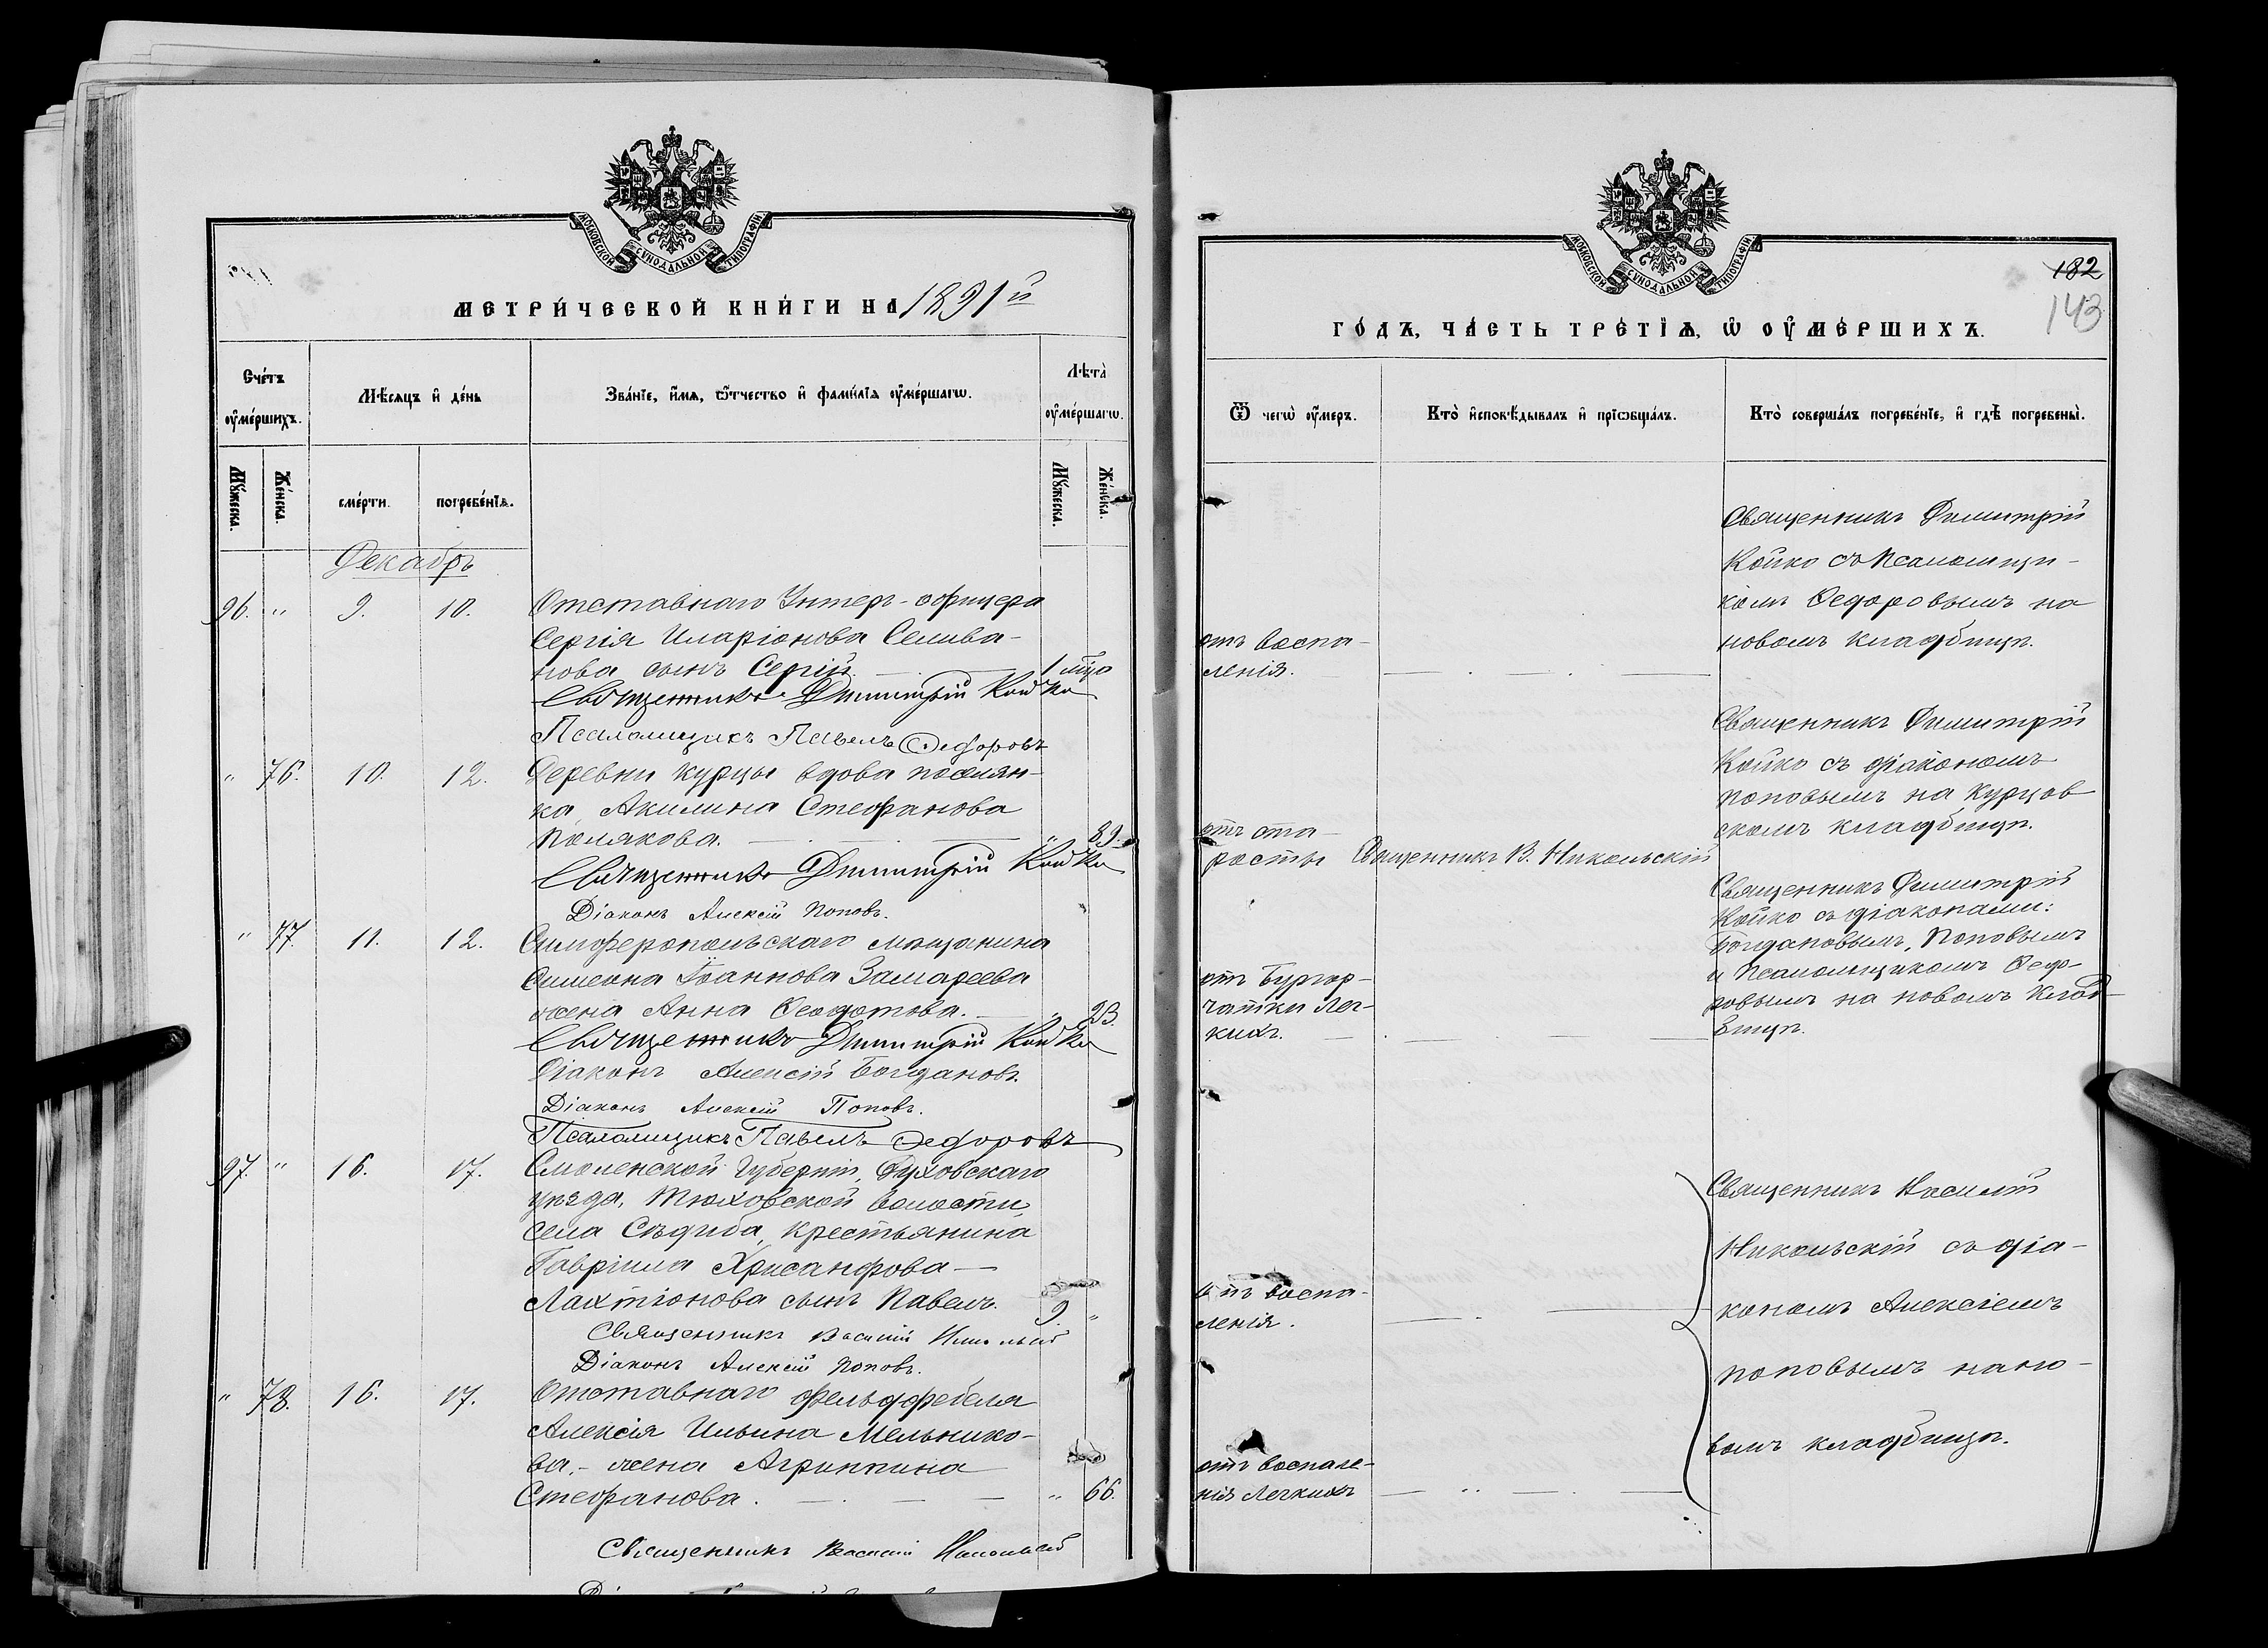 МОСКОВСКОЙ СѴНОДАЛЬНОЙ ТИПОГРАФІИ
МЕТРИ́ЧЕСКОЙ КНИ́ГИ НА 1891й
Сче́тъ ᲂу҆ме́ршихъ.
Мѣ́сяцъ и҆ де́нь
Зва́нїе, и҆́мѧ, ѻ҆́тчество и҆ фами́лїѧ ᲂу҆ме́ршагѡ.
Лѣта̀ ᲂу҆ме́ршагѡ.
Мꙋ́жеска.
Же́нска.
сме́рти.
погребе́нїѧ.
Мꙋ́жеска.
Же́нска.
Декабрь
96. " 9. 10. Отставнаго Унтеръ-офицера
Сергія Иларіонова Селива-
нова сынъ Сергій. 1 мца
Священникъ Димитрій Койко
Псаломщикъ Павелъ Федоровъ
" 76. 10. 12. Деревни Курцы вдова поселян-
ка, Акилина Стефанова
Полякова. " 89.
Священникъ Димитрій Койко
Діаконъ Алексій Поповъ.
" 77. 11. 12. Симферопольскаго мещанина
Симеона Іоаннова Замареева
жена Анна Феодотова. " 23.
Священникъ Димитрій Койко
Діаконъ Алексій Богдановъ.
Діаконъ Алексій Поповъ.
Псаломщикъ Павелъ Федоровъ
97. " 16. 17. Смоленской Губерніи, Духовскаго
уѣзда, Тюховской волости,
села Сѣдиба, крестьянина
Гавріила Хрисанфова
Лахтіонова сынъ Павелъ. 9 "
Священникъ Василій Никольскій
Діаконъ Алексій Поповъ.
" 78. 16. 17. Отставнаго фельдфебеля
Алексія Ильина Мельнико-
ва,- жена Агриппина
Стефанова. " 66.
Священникъ Василій Никольскій
МОСКОВСКОЙ СѴНОДАЛЬНОЙ ТИПОГРАФІИ
182
143
ГО́ДЪ, ЧА́СТЬ ТРЕ́ТЇѦ, Ѡ҆ ОУ҆МЕ́РШИХЪ.
Ѿ чегѡ̀ ᲂу҆́меръ.
Кто̀ и҆сповѣ́дывалъ и҆ прїѡбща́лъ.
Кто̀ соверша́лъ погребе́нїе, и҆ гдѣ̀ погребены̀.
Священникъ Димитрій
Койко съ Псаломщи-
комъ Федоровымъ на
новомъ кладбищѣ.
отъ воспа-
ленія.
Священникъ Димитрій
Койко съ діакономъ
Поповымъ на Курцов
скомъ кладбищѣ.
отъ ста-
рости Священникъ В. Никольскій
Священникъ Димитрій
Койко съ діаконами:
Богдановымъ, Поповымъ
и Псаломщикомъ Федо-
ровымъ на новомъ клад-
бищѣ.
отъ Бугор-
чатки лег-
кихъ.
Священникъ Василій
Никольскій съ діа-
кономъ Алексіемъ
Поповымъ на но-
вомъ кладбищѣ.
отъ воспа-
ленія.
отъ воспале-
нія легкихъ